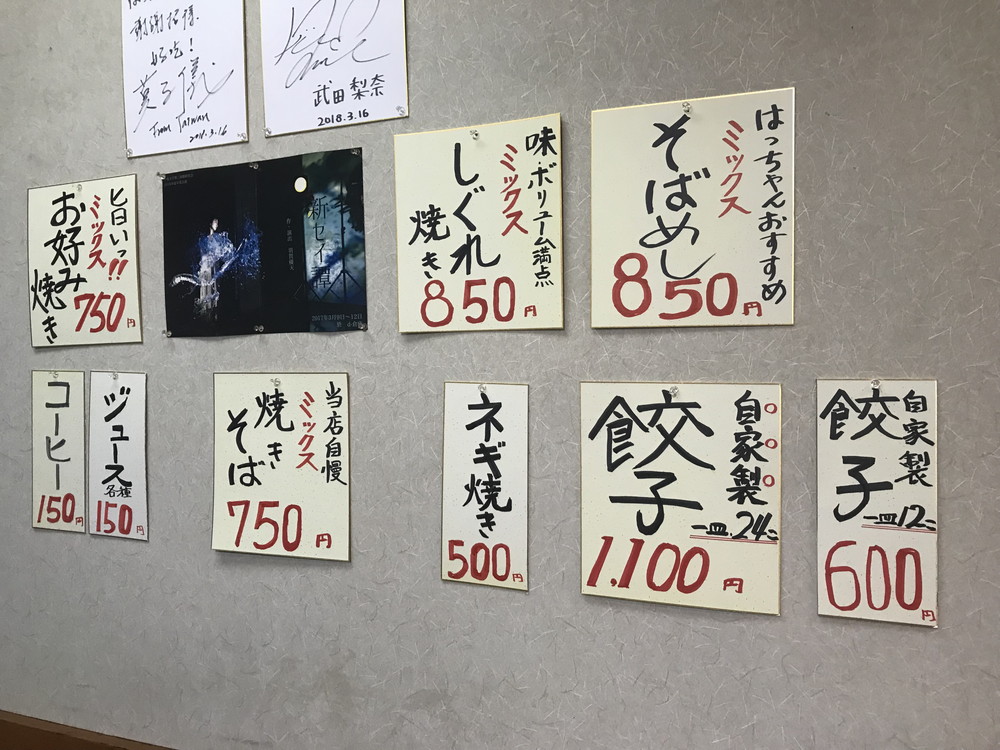 謝謝招待
好吃!
From Taiwan
2018.3.16
武田梨奈
2018.3.16
旨いっ!!
ミックス
お好み
焼き
750円
新セイ譚
味・ボリューム満点
ミックス
しぐれ
焼き
850円
はっちゃんおすすめ
ミックス
そばめし
850円
コーヒー
150円
ジュース
各種
150円
当店自慢
ミックス
焼き
そば
750円
ネギ焼き
500円
自家製
餃子
一皿.24コ
1,100円
自家製
餃子
一皿12コ
600円